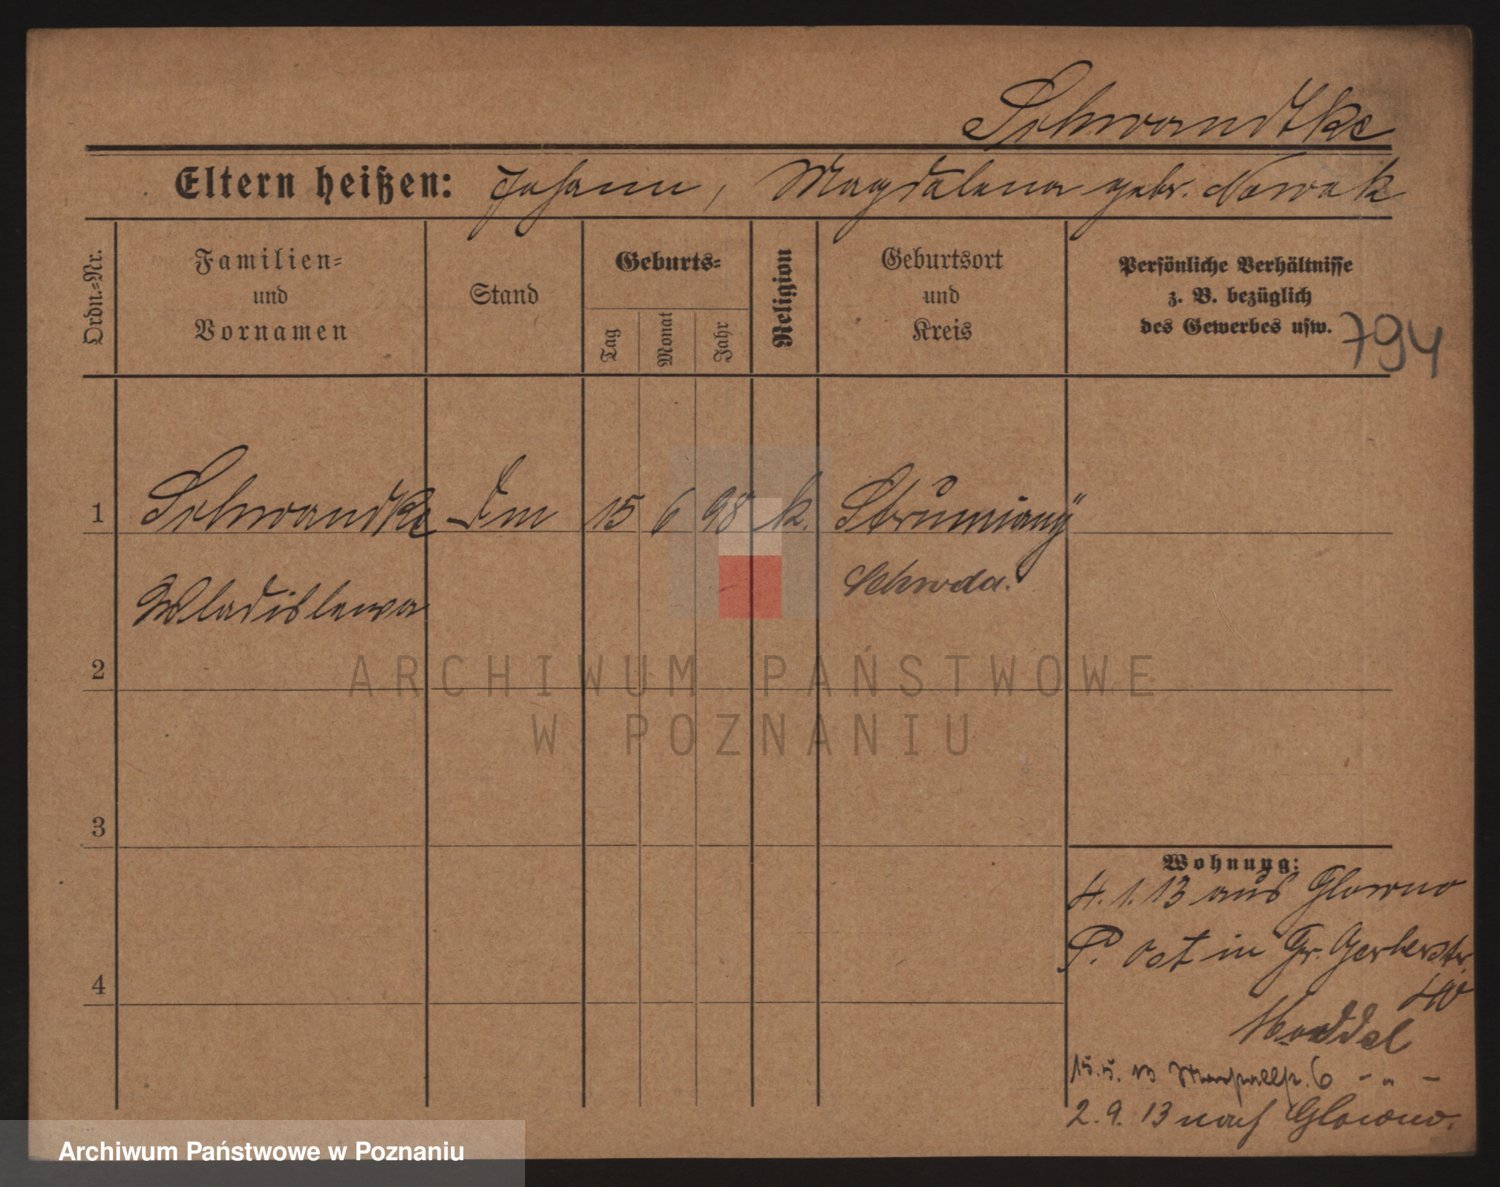 Schwandtke
Eltern heißen: Johann, Magdalena gebr. Nowak
Ordn.-Nr.
Familien-
und
Vornamen
Stand
Geburts-
Tag
Monat
Jahr
Religion
Geburtsort
und
Kreis
Persönliche Verhältnisse
z. B. bezüglich
des Gewerbes usw.
794
1 Schwandke Dm 15 6 98 k. Strumiany
Wladislawa Schroda.
2
ARCHIWUM PAŃSTWOWE
W POZNANIU
3
Wohnung:
4. 1. 13 aus Glowno
P. Ost in Gr. Gerberstr.
40
4
15. 5. 13 6 - " -
2. 9. 13 nach Glowno.
Archiwum Państwowe w Poznaniu